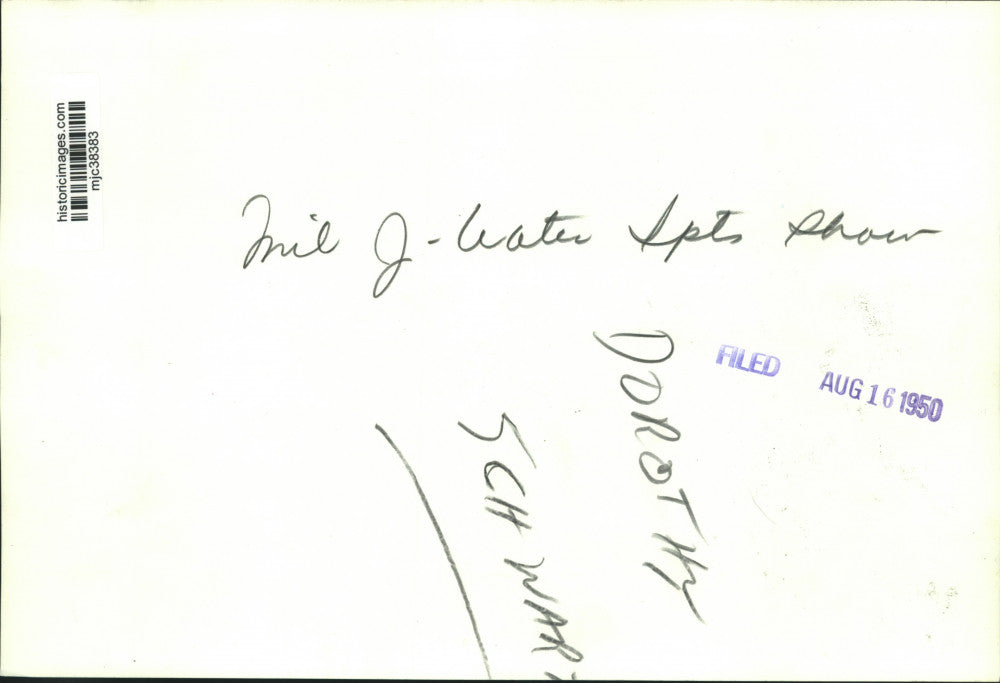 historicimages.com
mjc38383
Mil J - Water Spts Show
DOROTHY
SCHWAR
FILED AUG 16 1950